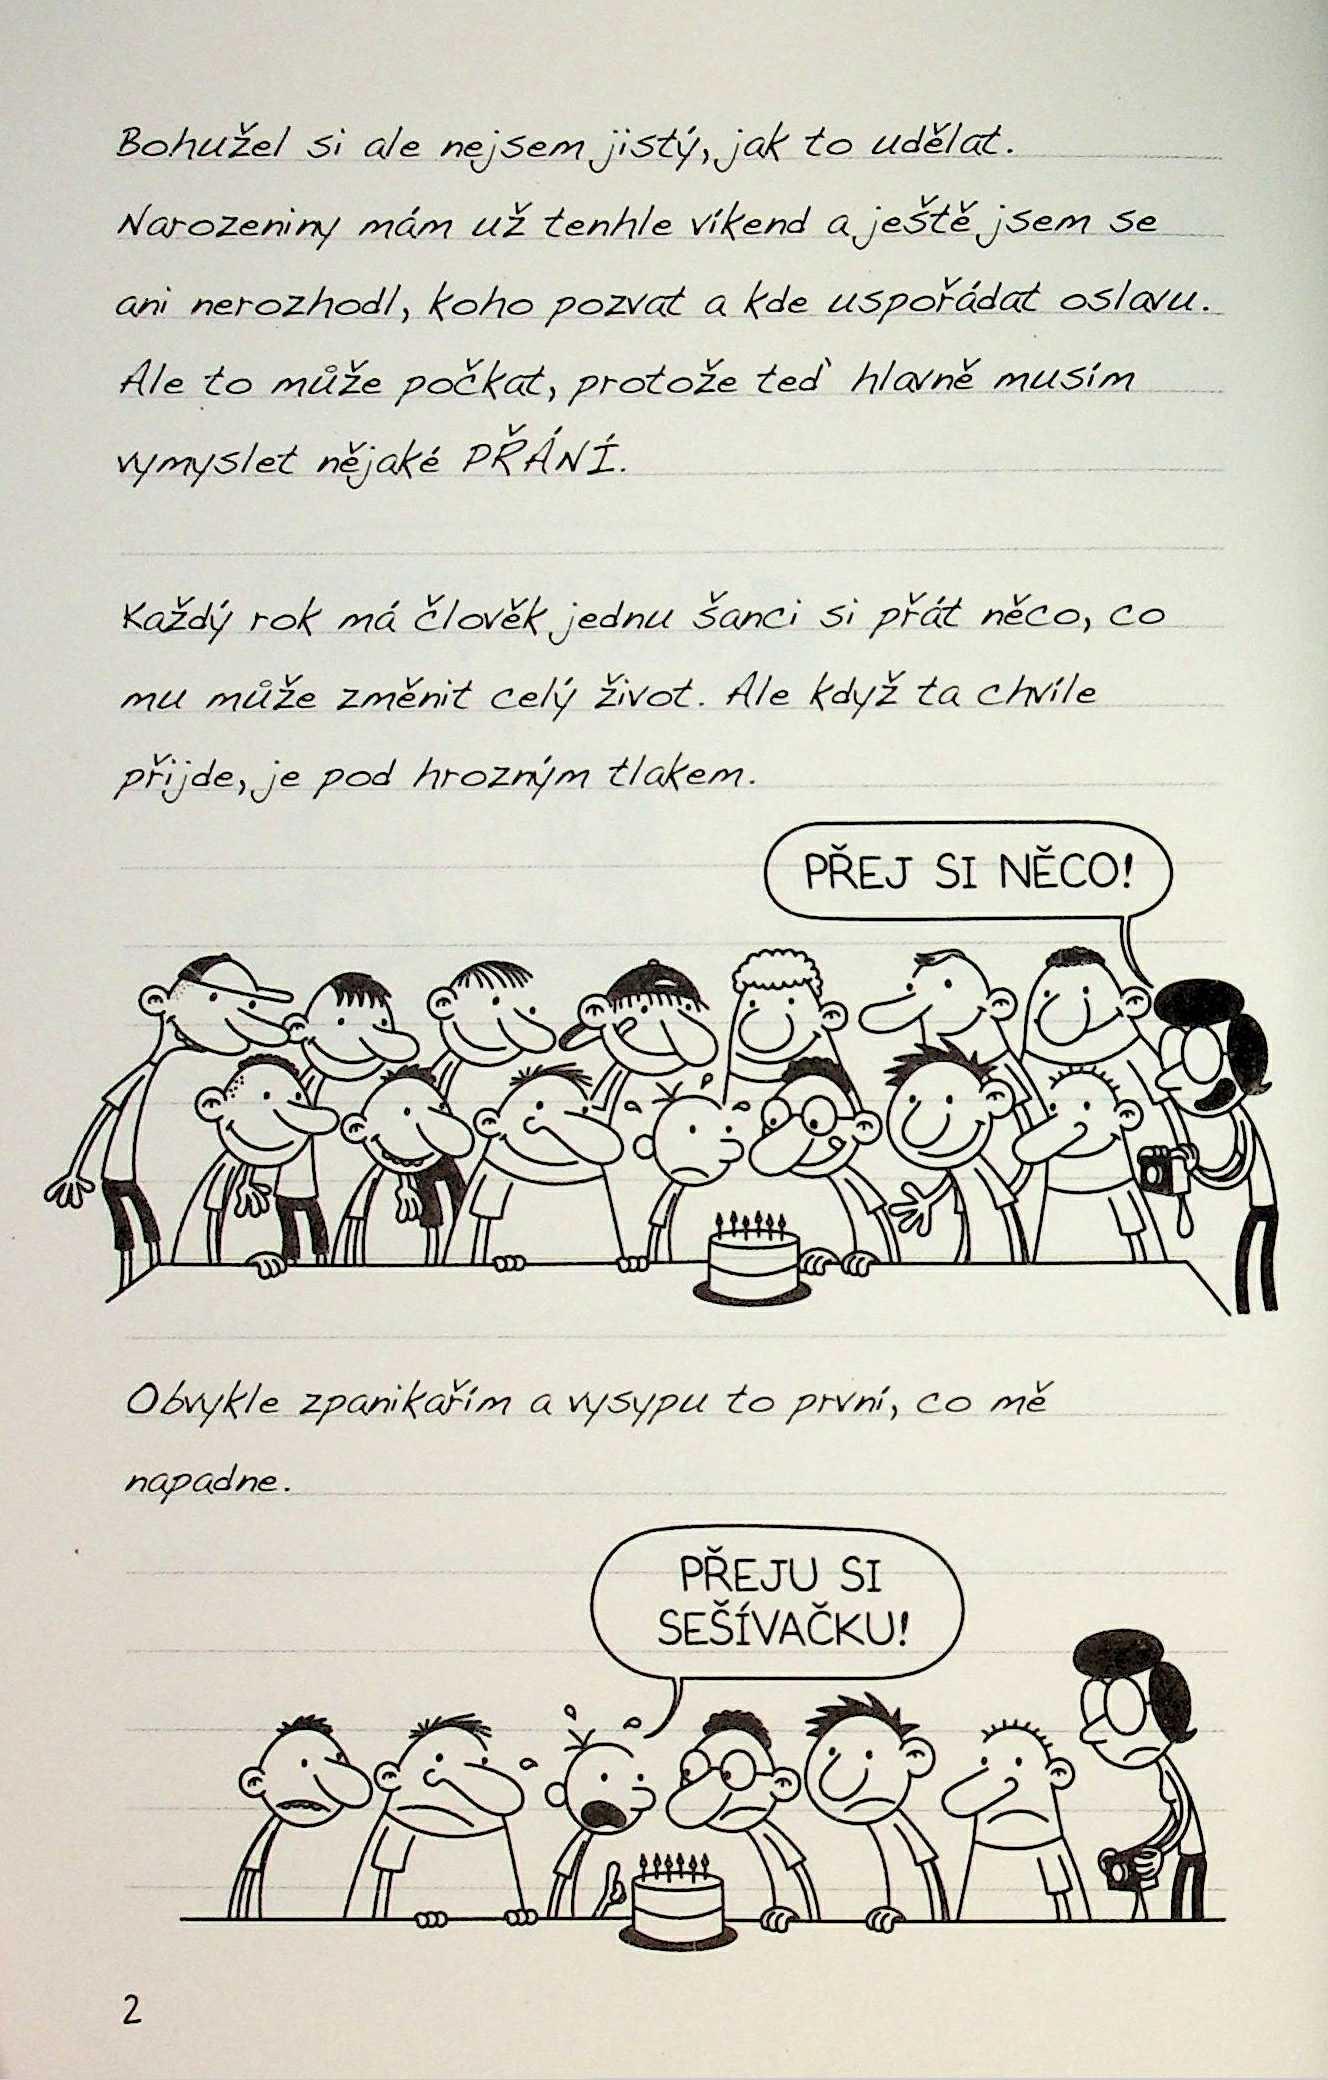 Bohužel si ale nejsem jistý, jak to udělat.
Narozeniny mám už tenhle víkend a ještě jsem se
ani nerozhodl, koho pozvat a kde uspořádat oslavu.
Ale to může počkat, protože teď hlavně musím
vymyslet nějaké PŘÁNÍ.
Každý rok má člověk jednu šanci si přát něco, co
mu může změnit celý život. Ale když ta chvíle
přijde, je pod hrozným tlakem.
PŘEJ SI NĚCO!
Obvykle zpanikařím a vysypu to první, co mě
napadne.
PŘEJU SI
SEŠÍVAČKU!
2